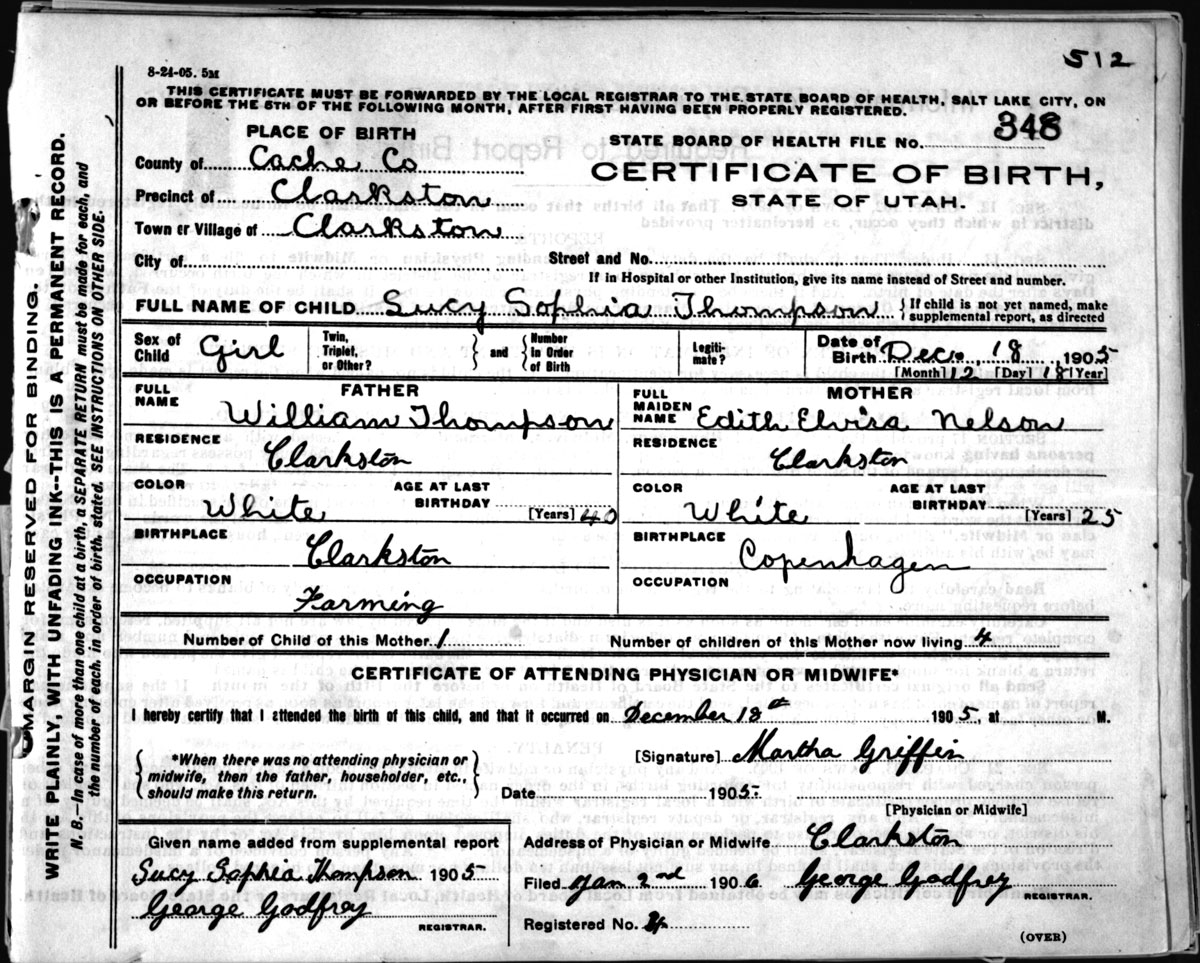 512
8-24-05. 5M
THIS CERTIFICATE MUST BE FORWARDED BY THE LOCAL REGISTRAR TO THE STATE BOARD OF HEALTH, SALT LAKE CITY, ON
OR BEFORE THE 5TH OF THE FOLLOWING MONTH, AFTER FIRST HAVING BEEN PROPERLY REGISTERED.
PLACE OF BIRTH
STATE BOARD OF HEALTH FILE No. 348
County of Cache Co
CERTIFICATE OF BIRTH,
Precinct of Clarkston
STATE OF UTAH.
Town or Village of Clarkston
City of
Street and No.
If in Hospital or other Institution, give its name instead of Street and number.
FULL NAME OF CHILD Sucy Sophia Thompson { If child is not yet named, make
supplemental report, as directed
Sex of Child Girl
Twin, Triplet, or Other? } and { Number in Order of Birth
Legiti-mate?
Date of Birth Dec. 18 1905
[Month] 12 [Day] 18 [Year]
FATHER
FULL NAME William Thompson
RESIDENCE Clarkston
COLOR White
AGE AT LAST BIRTHDAY [Years] 40
BIRTHPLACE Clarkston
OCCUPATION Farming
MOTHER
FULL MAIDEN NAME Edith Elvira Nelson
RESIDENCE Clarkston
COLOR White
AGE AT LAST BIRTHDAY [Years] 25
BIRTHPLACE Copenhagen
OCCUPATION
Number of Child of this Mother 1 Number of children of this Mother now living 4
CERTIFICATE OF ATTENDING PHYSICIAN OR MIDWIFE*
I hereby certify that I attended the birth of this child, and that it occurred on December 18th 1905, at M.
{ *When there was no attending physician or
midwife, then the father, householder, etc.,
should make this return. }
[Signature] Martha Griffin
Date 1905.
[Physician or Midwife]
Given name added from supplemental report
Sucy Sophia Thompson 1905
George Godfrey
REGISTRAR.
Address of Physician or Midwife Clarkston
Filed Jan 2nd 1906 George Godfrey REGISTRAR
Registered No.
(OVER)
MARGIN RESERVED FOR BINDING.
WRITE PLAINLY, WITH UNFADING INK--THIS IS A PERMANENT RECORD.
N. B.—In case of more than one child at a birth, a SEPARATE RETURN must be made for each, and
the number of each, in order of birth, stated. SEE INSTRUCTIONS ON OTHER SIDE.